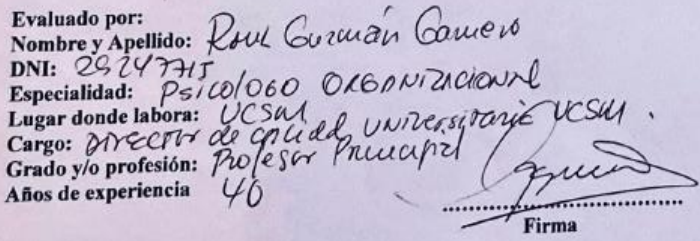 Evaluado por:
Nombre y Apellido: Raul Guzmán Gamero
DNI: 29247715
Especialidad: PSICOLOGO ORGANIZACIONAL
Lugar donde labora: UCSM
Cargo: DIRECTOR de calidad UNIVERSITARIA UCSM.
Grado y/o profesión: Profesor Principal
Años de experiencia 40
Firma